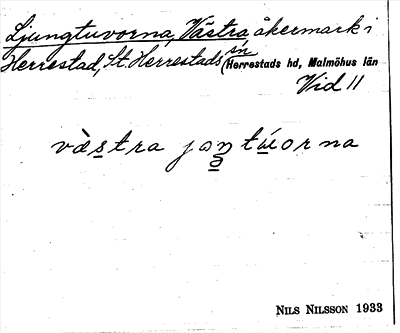 Ljungtuvorna, Västra, åkermark i
Herrestad, St. Herrestads sn
(Herrestads hd, Malmöhus län
Vid 11
NILS NILSSON 1933